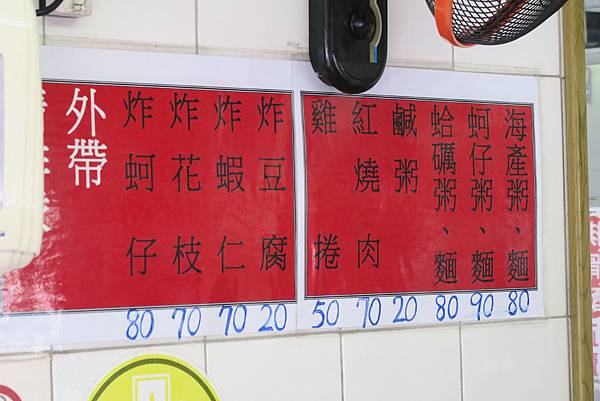 海產粥、麵 80
蚵仔粥、麵 90
蛤礪粥、麵 80
鹹粥 20
紅燒肉 70
雞捲 50
炸豆腐 20
炸蝦仁 70
炸花枝 70
炸蚵仔 80
外帶